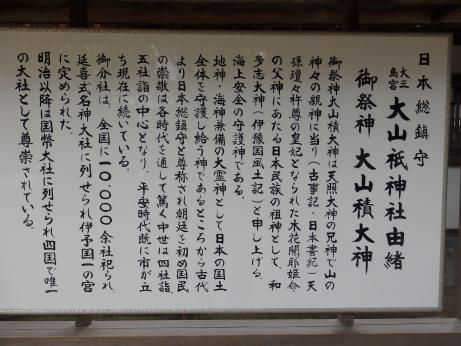 日本総鎮守
大三島宮 大山祇神社由緒
御祭神 大山積大神
御祭神大山積大神は天照大神の兄神で山の
神々の親神に当り（古事記・日本書記）天
孫瓊々杵尊の皇妃となられた木花開耶姫命
の父神にあたる日本民族の祖神として、和
多志大神（伊豫国風土記）と申し上げる。
海上安全の守護神である。
地神・海神兼備の大霊神として日本の国土
全体を守護し給う神であるところから古代
より日本総鎮守と尊称され朝廷を初め国民
の崇敬は各時代を通して篤く中世は四社詣、
五社詣の中心となり、平安時代既に市が立
ち現在に続いている。
御分社は、全国に一〇,〇〇〇余社祀られ、
延喜式名神大社に列せられ伊予国一の宮
に定められた。
明治以降は国幣大社に列せられ四国で唯一
の大社として尊崇されている。